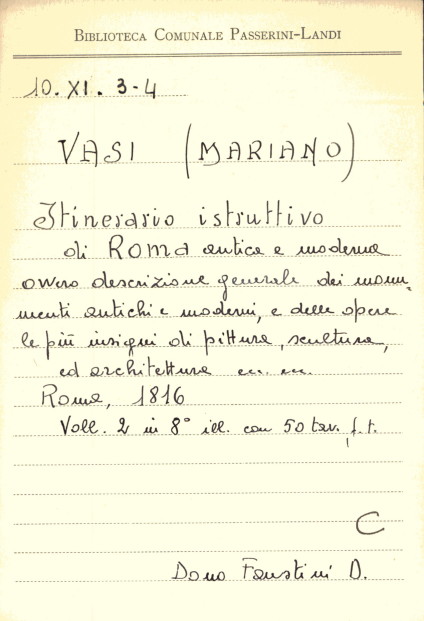 BIBLIOTECA COMUNALE PASSERINI-LANDI
10. XI. 3-4
VASI (MARIANO)
Itinerario istruttivo
di Roma antica e moderna
ovvero descrizione generale dei monu-
menti antichi e moderni, e delle opere
le più insigni di pittura, scultura,
ed architettura ec. ec.
Roma, 1816
Voll. 2 in 8° ill. con 50 tav. f. t.
C
Dono Faustini D.